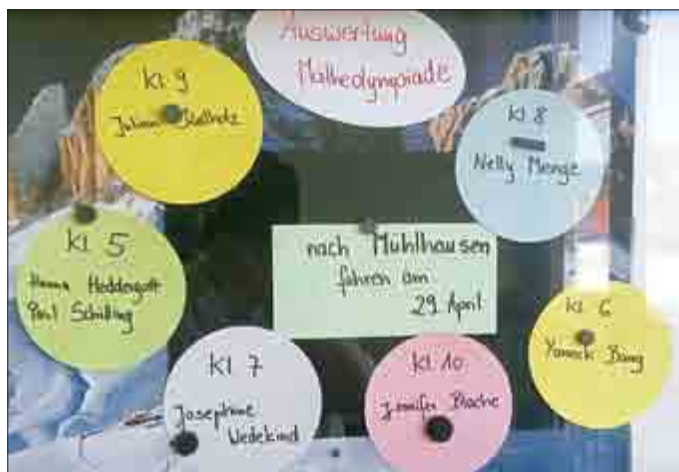 Auswertung
Matheolympiade
Kl. 9
Kl. 8
Nelly Menge
Kl 5
Hanna Heddergott
Paul Schilling
nach Mühlhausen
fahren am
29. April
Kl. 6
Yannick
Kl 7
Josephine
Wedekind
Kl. 10
Jennifer Blache